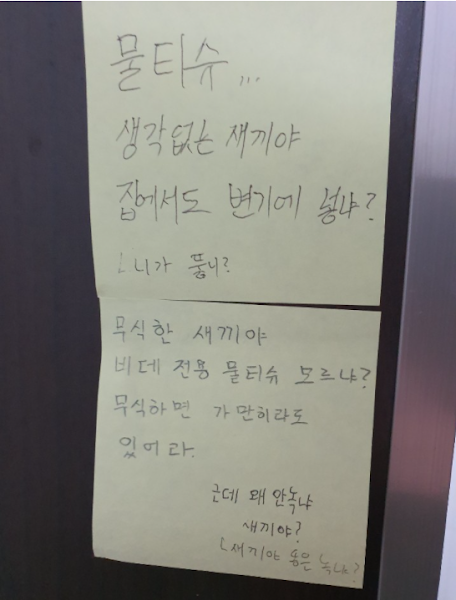 물티슈...
생각없는 새끼야
집에서도 변기에 넣냐?
ㄴ니가 뚫니?
무식한 새끼야
비데 전용 물티슈 모르냐?
무식하면 가만히라도
있어라.
근데 왜 안녹냐
새끼야?
ㄴ새끼야 똥은 녹냐?